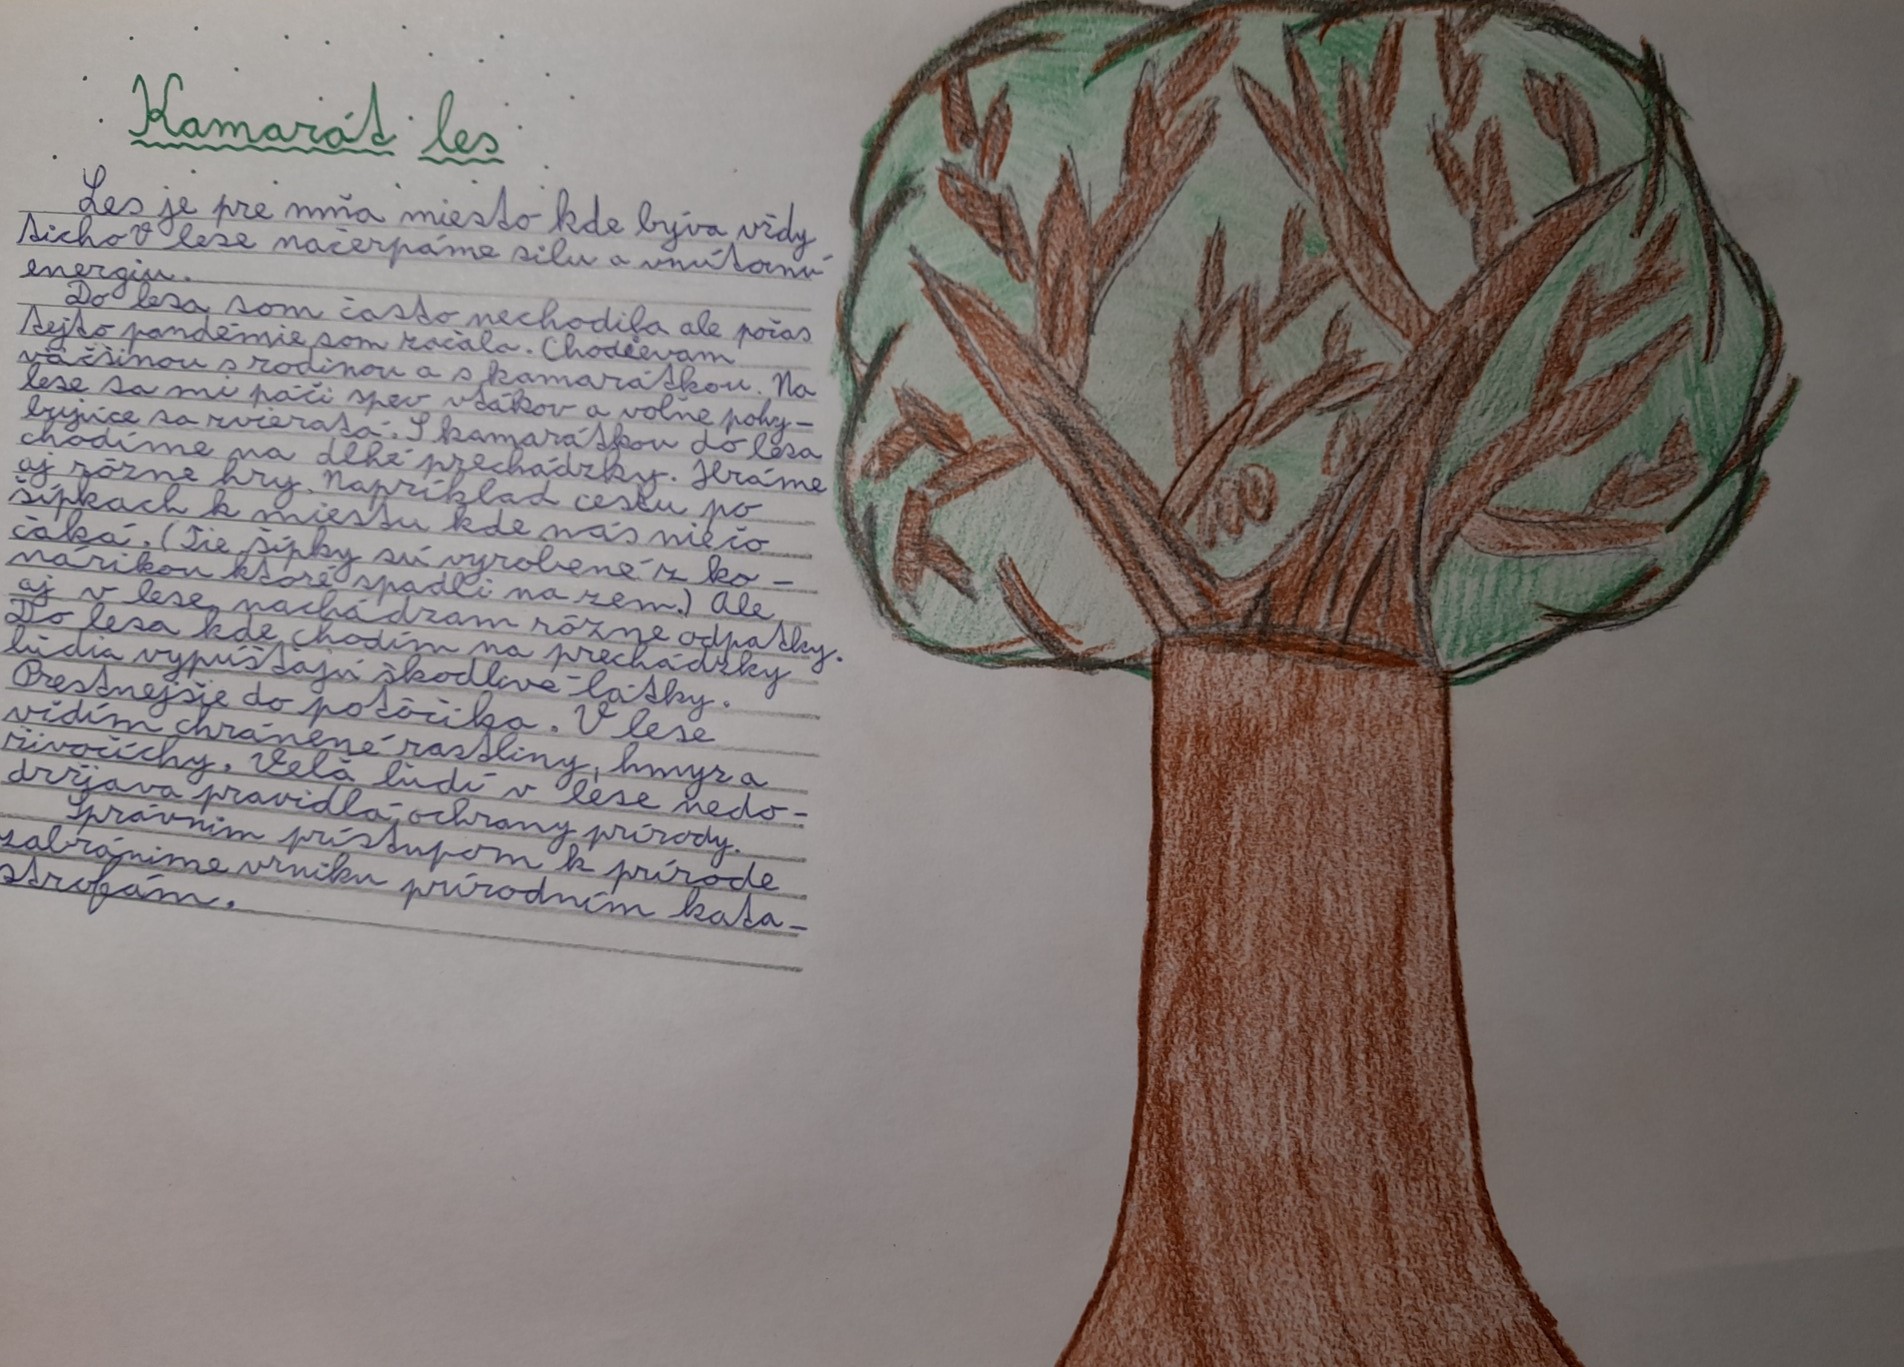 Kamarát les
Les je pre mňa miesto kde býva vždy
ticho V lese načerpáme silu a vnútornú
energiu.
Do lesa som často nechodila ale počas
tejto pandémie som začala. Chodievam
väčšinou s rodinou a s kamarátkou. Na
lese sa mi páči spev vtákov a voľne pohy-
bujúce sa zvieratá. S kamarátkou do lesa
chodíme na dlhé prechádzky. Hráme
aj rôzne hry. Napríklad cestu po
šípkach k miestu kde nás niečo
čaká. (Tie šípky sú vyrobené z ko-
nárikou ktoré spadli na zem.) Ale
aj v lese nachádzam rôzne odpatky.
Do lesa kde chodím na prechádzky
ľudia vypúštajú škodlivé látky.
Prestnejšie do potôčika. V lese
vidím chránené rastliny, hmyz a
živočíchy. Veľa ľudí v lese nedo-
držjava pravidlá ochrany prírody.
Správnim prístupom k prírode
zabránime vzniku prírodním kata-
strofám.